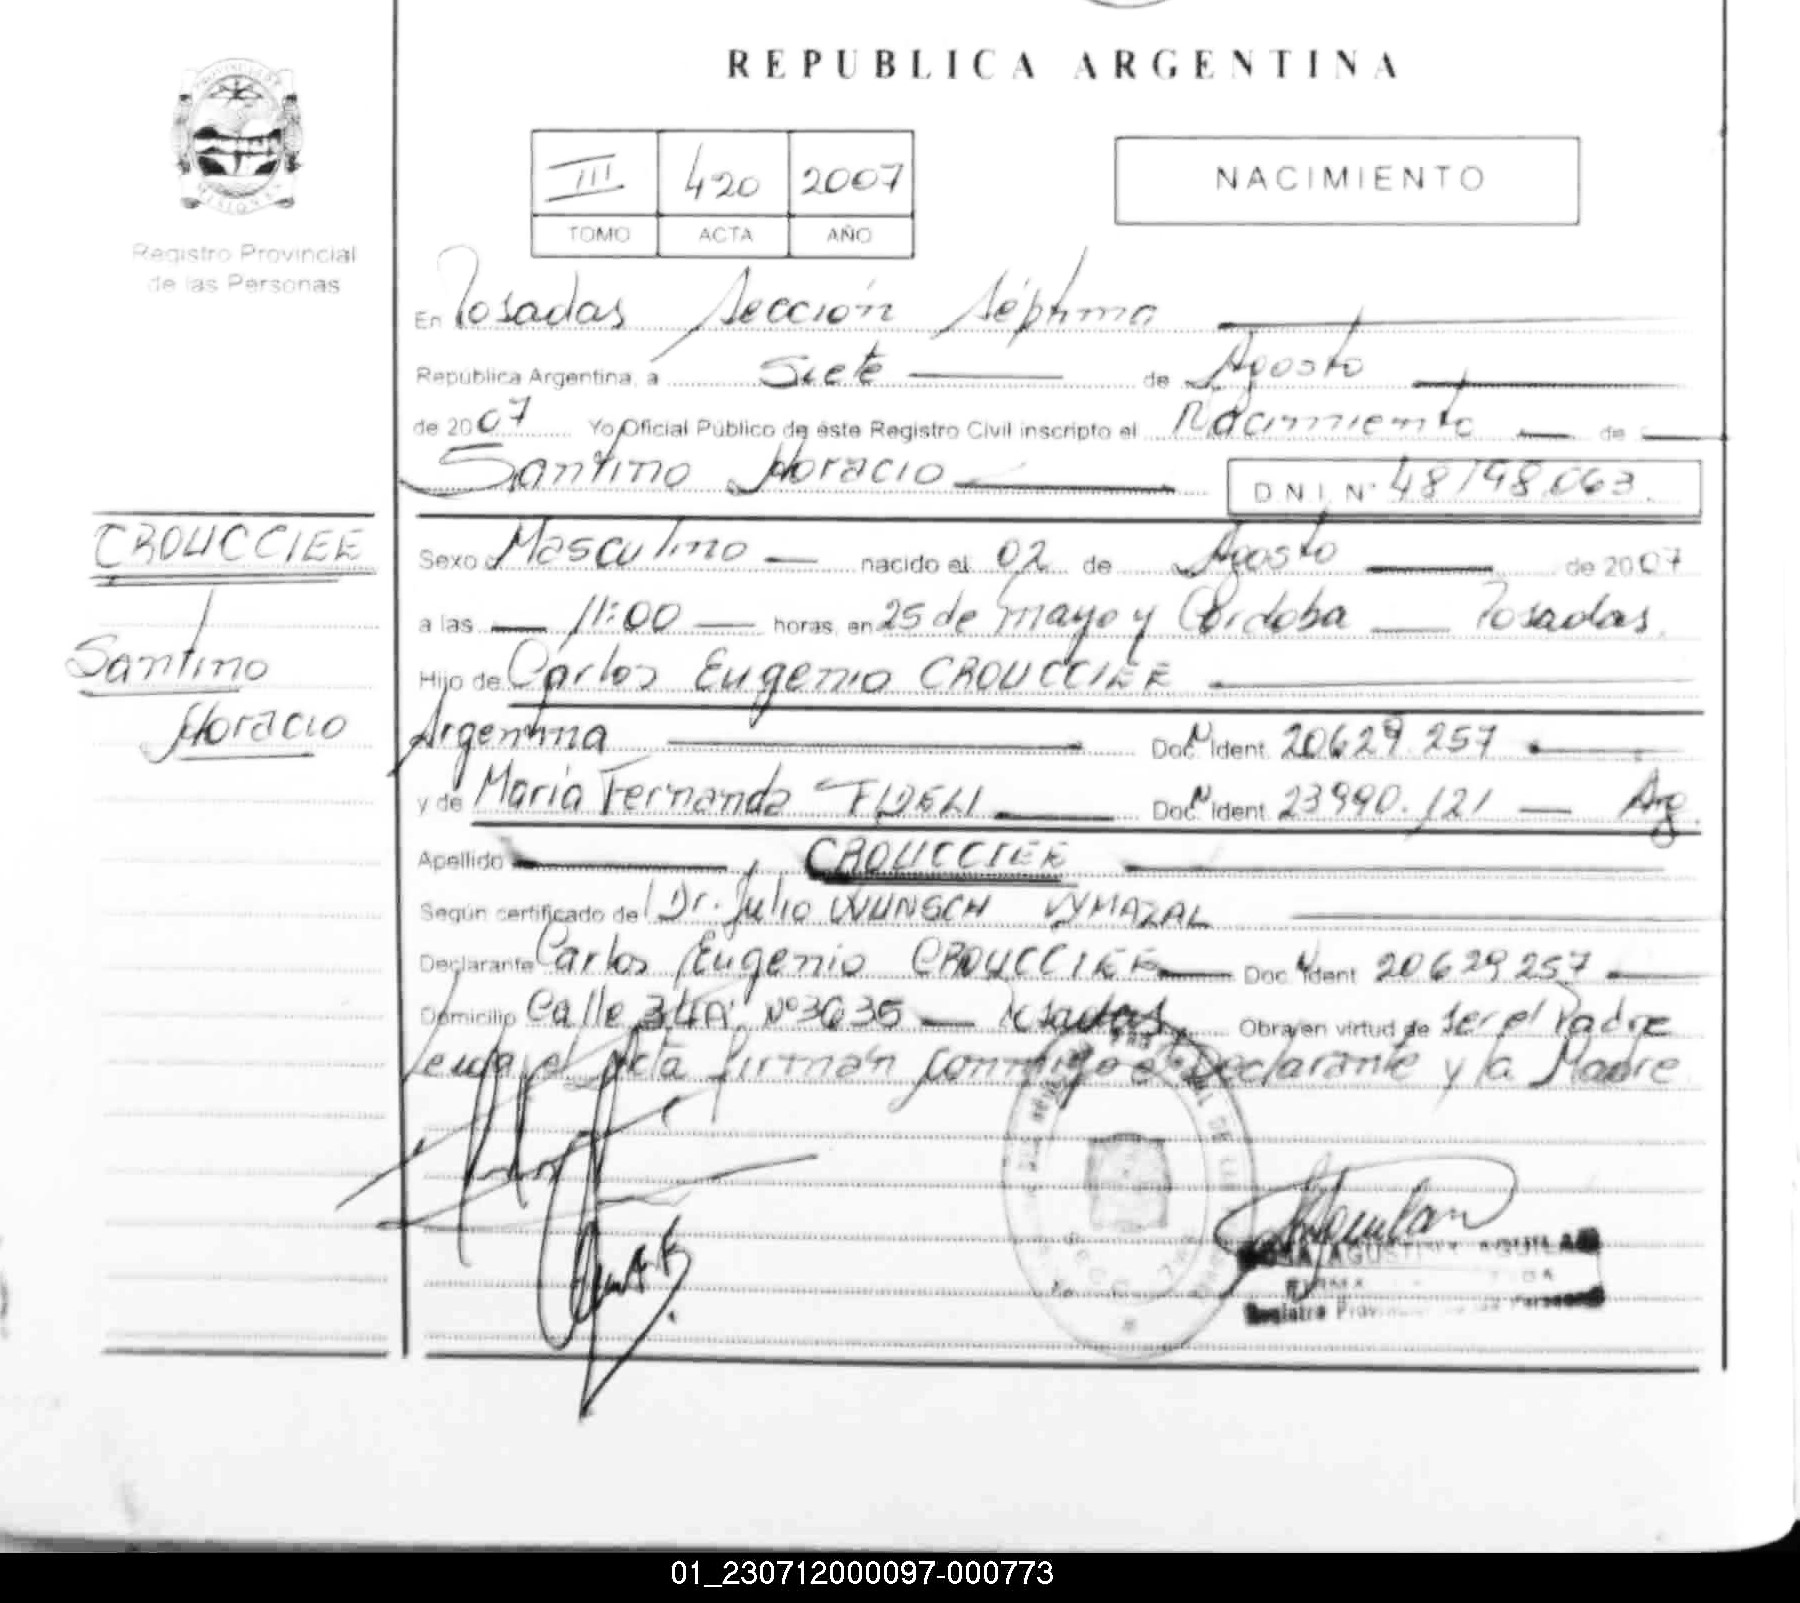 REPUBLICA ARGENTINA
PROVINCIA DE
MISIONES
III 420 2007
TOMO ACTA AÑO
NACIMIENTO
Registro Provincial
de las Personas
En Posadas Sección Séptima
República Argentina, a Siete de Agosto
de 2007 Yo Oficial Público de éste Registro Civil inscripto el Nacimiento de
Santino Horacio D.N.I. N° 48198.063
CROUCCIEE
Santino
Horacio
Sexo Masculino nacido el 02 de Agosto de 2007
a las 11:00 horas, en 25 de mayo y Córdoba Posadas.
Hijo de Carlos Eugenio CROUCCIEE
Argentina Doc. N Ident. 20629.257
y de María Fernanda FIDELI Doc. N Ident. 23990.121 Arg.
Apellido CROUCCIEE
Según certificado del Dr. Julio WUNSCH VYMAZAL
Declarante Carlos Eugenio CROUCCIEE Doc. N Ident 20629257
Domicilio Calle 34A N° 3635 Posadas Obra en virtud de ser el Padre
Leída el Acta firman conmigo el Declarante y la Madre
AGUSTINA AGUILAR
FIRMA
Registro Provincial de las Personas
01_230712000097-000773